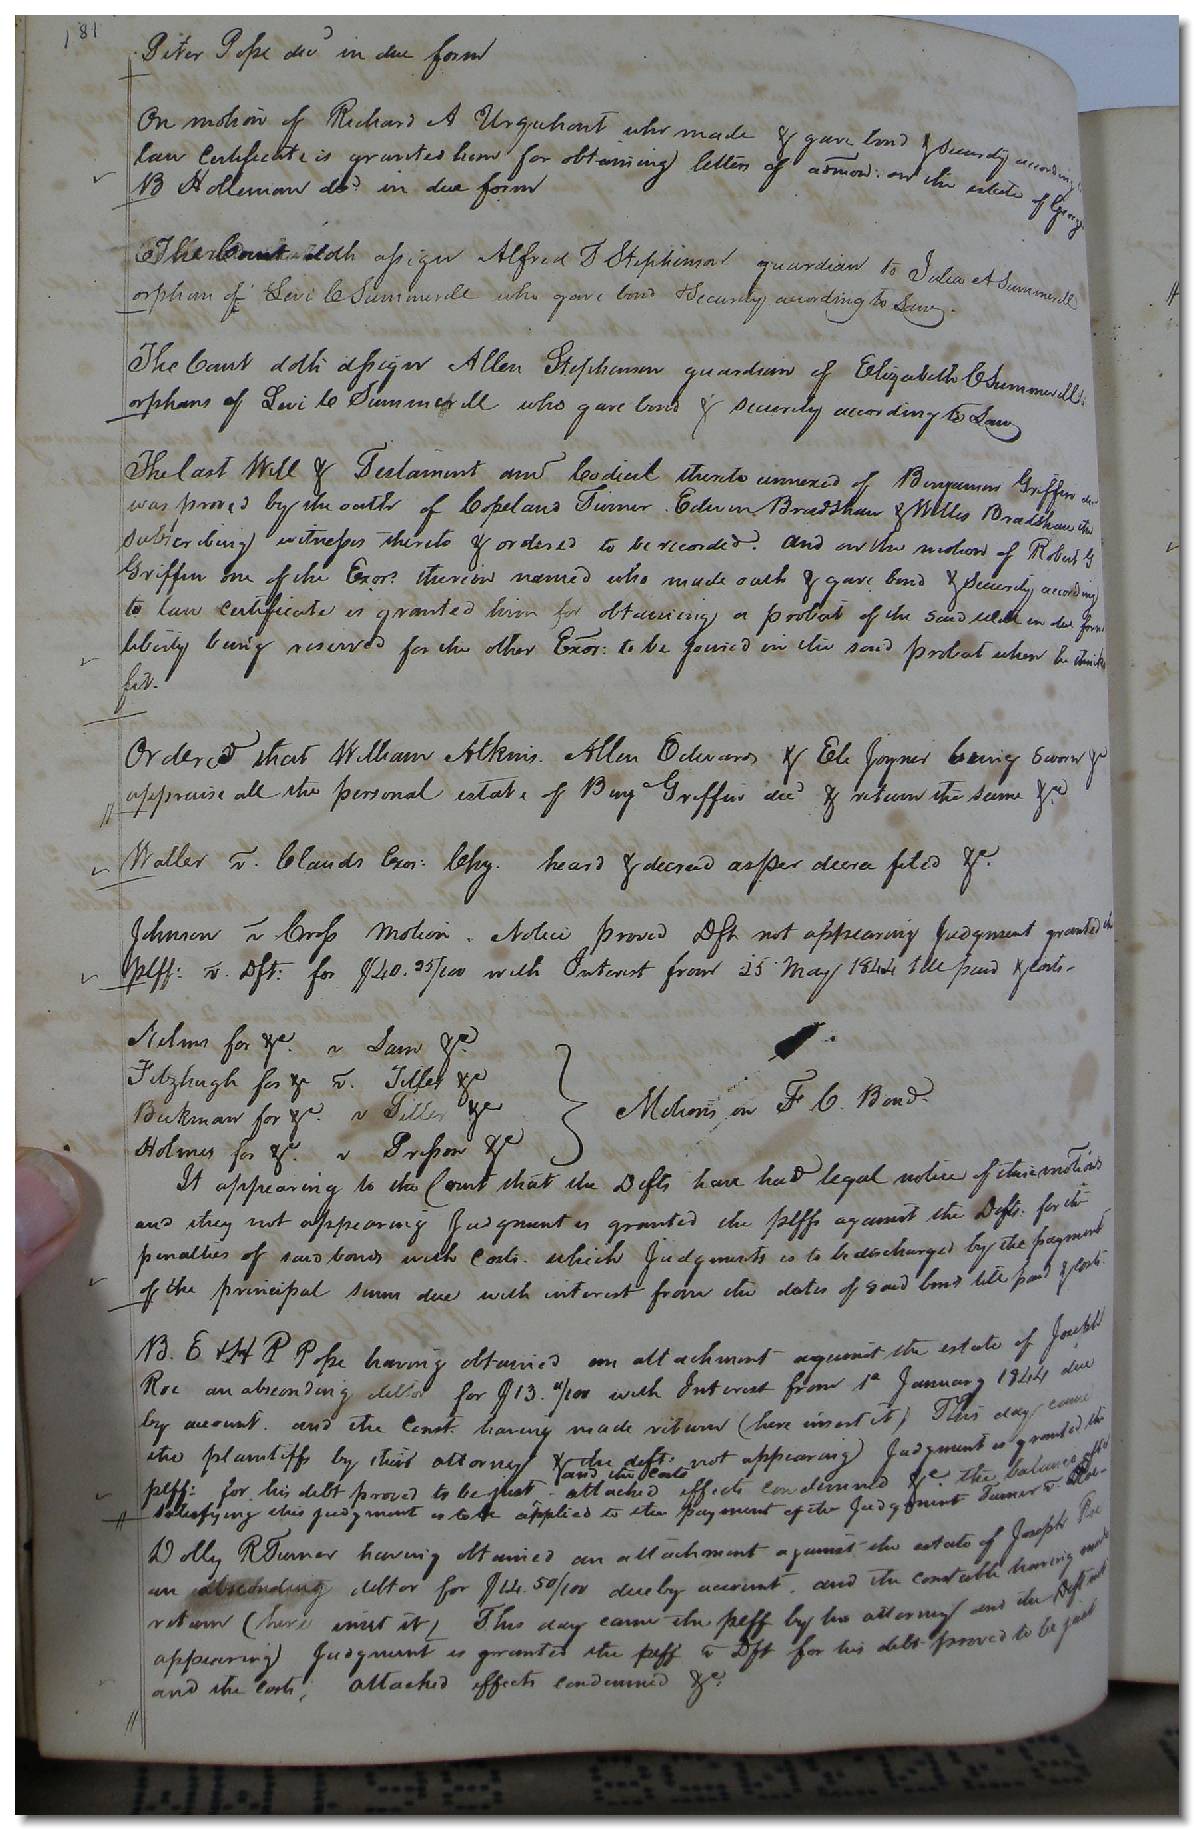 181
Peter Pope decd in due form
On motion of Richard A Urquhart who made & gave bond & security according to
law certificate is granted him for obtaining letters of admon: on the estate of George
B Holleman decd in due form
The Court doth assign Alfred T Stephenson guardian to Julia A Summerell
orphan of Levi C Summerell who gave bond & Security according to Law.
The Court doth assign Allen Stephenson guardian of Elizabeth C Summerell
orphans of Levi C Summerell who gave bond & security according to Law
The last Will & Testament and Codicil thereto annexed of Benjamin Griffin decd
was proved by the oaths of Copeland Turner Edwin Bradshaw & Willis Bradshaw the
subscribing witnesses thereto & ordered to be recorded. and on the motion of Robert G
Griffin one of the Exors. therein named who made oath & gave bond & security according
to law certificate is granted him for obtaining a probat of the said will in due form
liberty being reserved for the other Exor: to be joined in the said probat when he thinks
fit.
Ordered that William Atkins. Allen Edwards & Eli Joyner being sworn &c
appraise all the personal estate of Benj Griffin decd & return the same &c
Waller v. Clauds Exor: Chy. heard & decreed as per decree filed &c.
Johnson v Cross Motion. Notice proved Dft not appearing Judgment granted the
plff: v. Dft: for $40.35/100 with Interest from 25 May 1844 till paid & costs.
Nelms for &c. v Lain &c.
Fitzhugh for &c v. Tiller &c
Beekman for &c v Tiller &c
Holmes for &c. v Presson &c
Motions on F C. Bond.
It appearing to the Court that the Defts have had legal notice of these motions
and they not appearing Judgment is granted the plffs against the Defts: for the
penalties of said bonds with Costs. which Judgments is to be discharged by the payment
of the principal sums due with interest from the dates of said bonds till paid & costs.
B. E & H P Pope having obtained an attachment against the estate of Joseph
Roe an absconding debtor for $13.11/100 with Interest from 1st January 1844 due
by account. and the Const. having made return (here insert it) This day came
the plaintiffs by their attorney & the deft: not appearing Judgment is granted the
and the costs
plff: for his debt proved to be just. attached effects condemned &c the balance after
satisfying this judgment is to be applied to the payment of the Judgment Turner v Roe.
Dolly R Turner having obtained an attachment against the estate of Joseph Roe
an absconding debtor for $14.50/100 due by account. and the constable having made
return (here insert it) This day came the plff by his attorney and the Deft not
appearing Judgment is granted the plff v Dft for his debt proved to be just
and the costs; attached effects condemned &c.